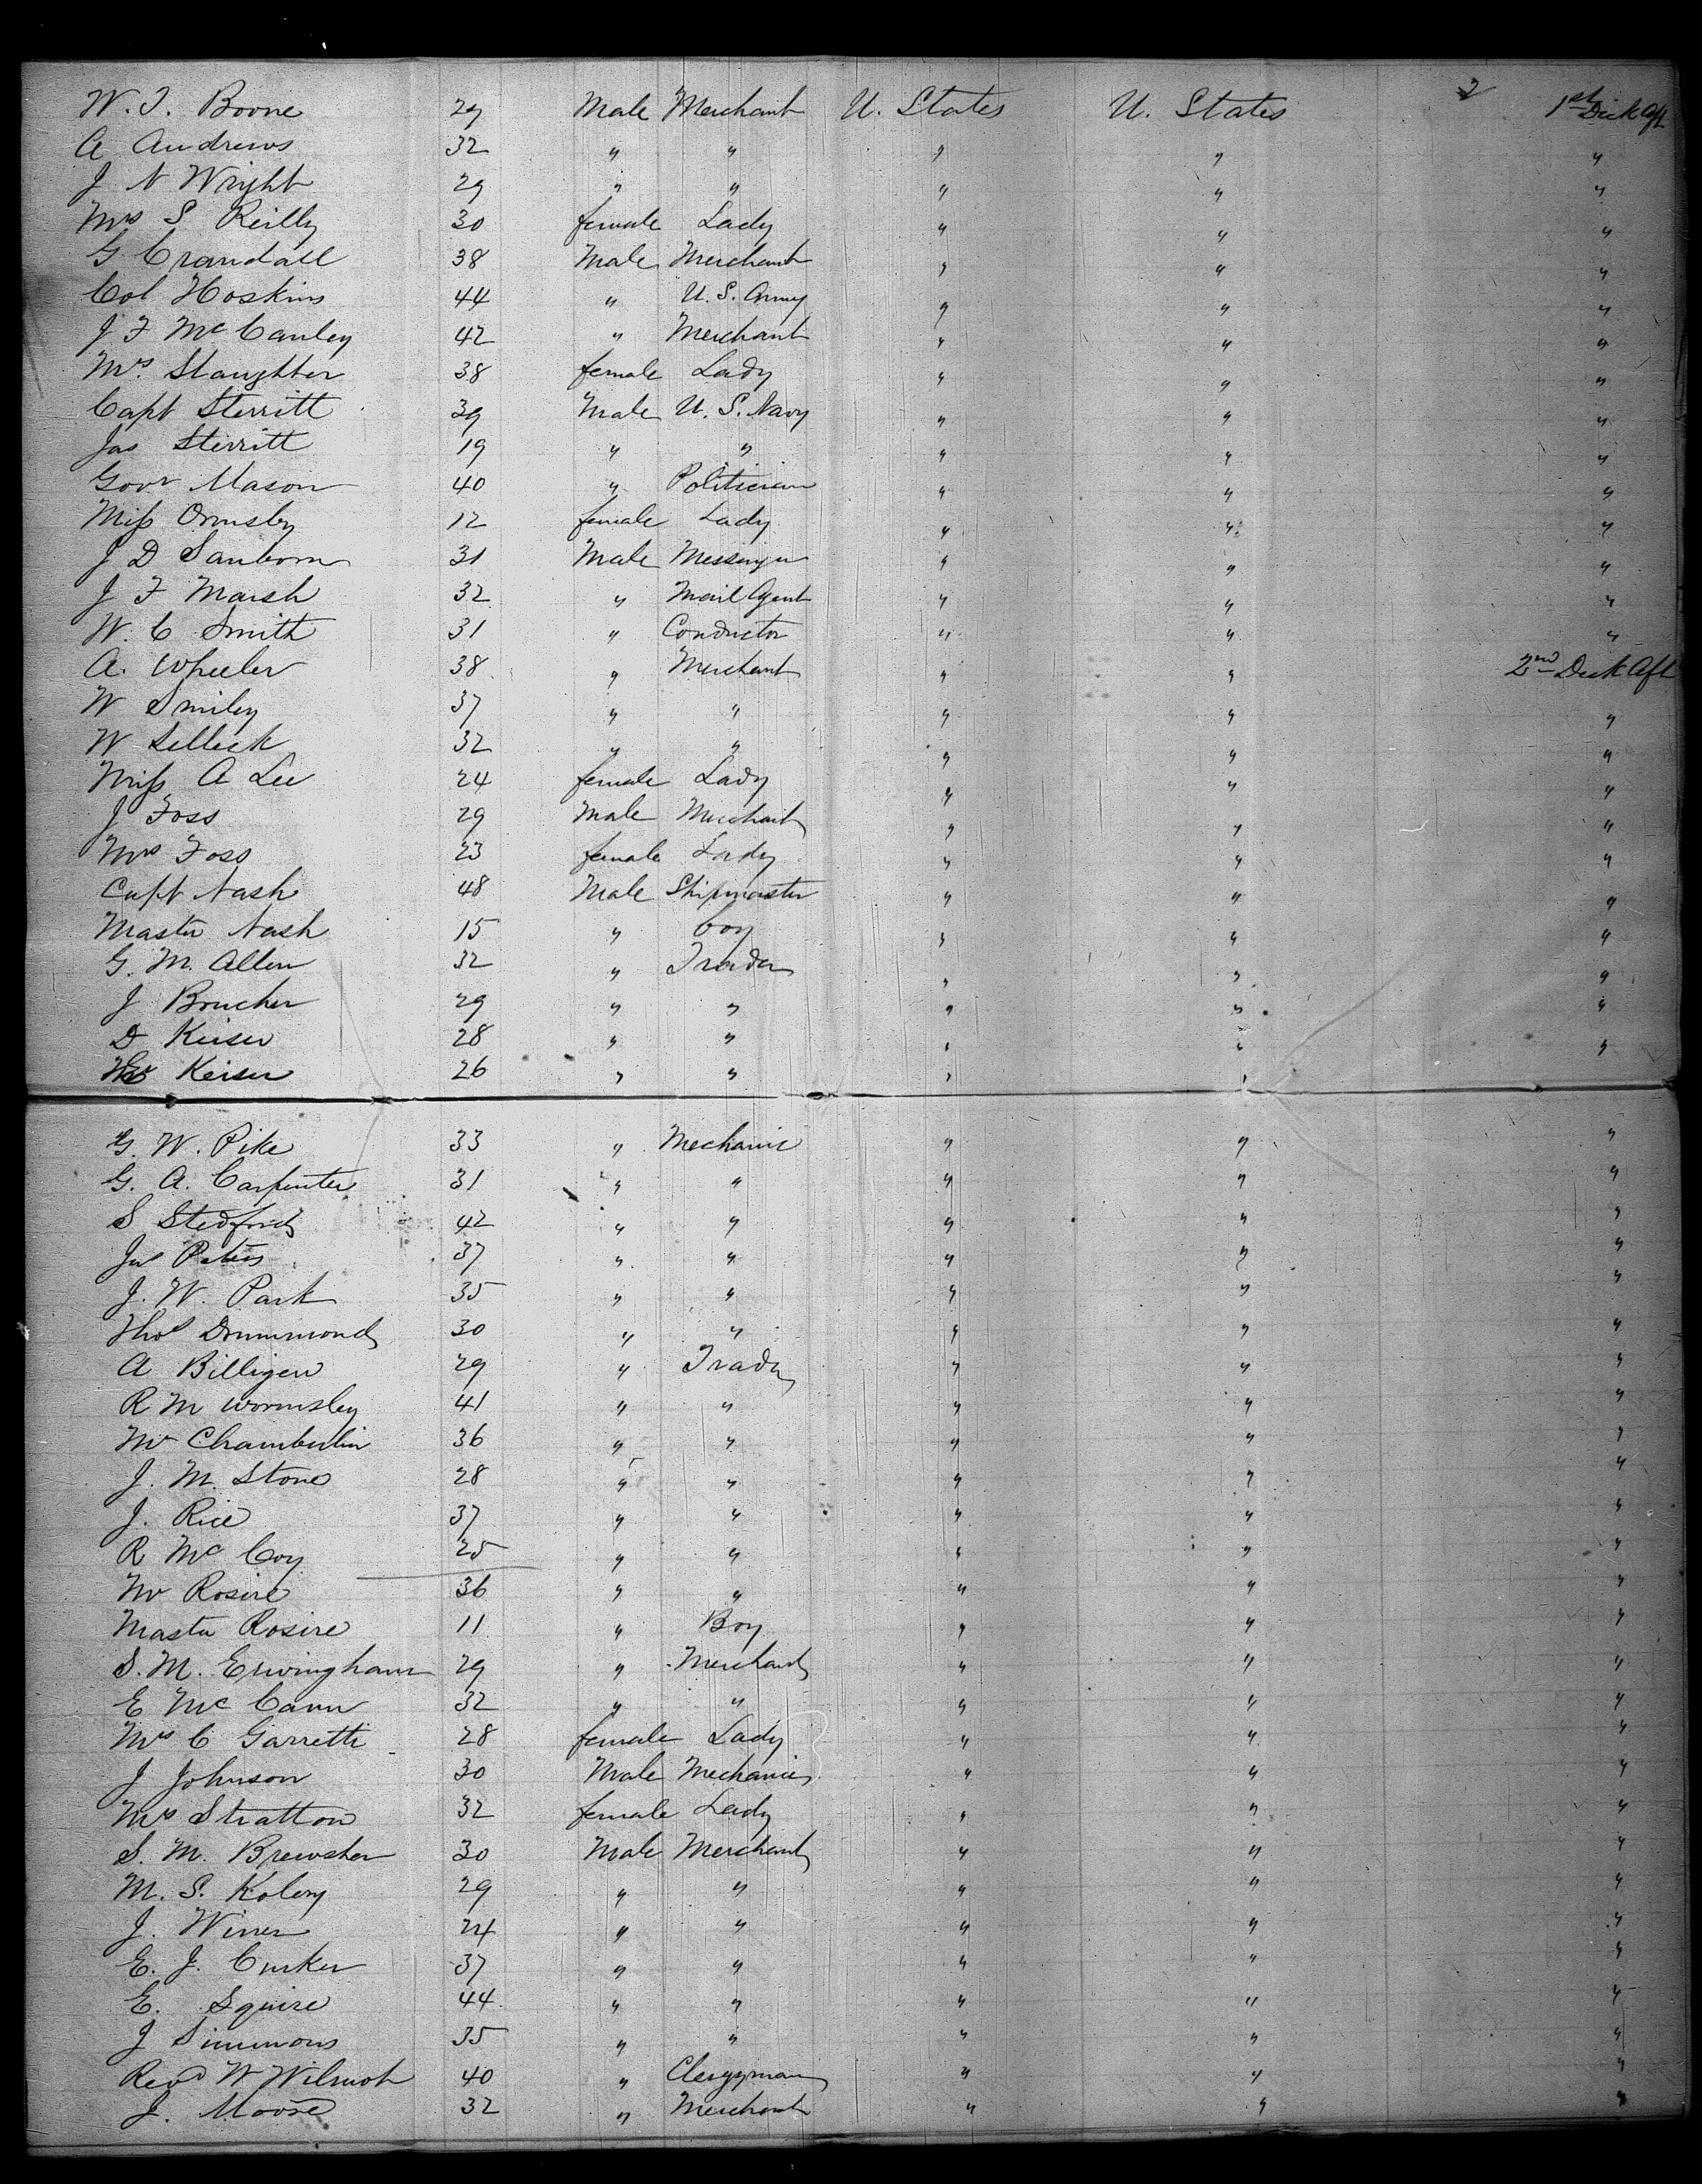 2
W. T. Boone 29 Male Merchant U. States U. States 1st Deck Aft
A Andrews 32 " " " " "
J N Wright 29 " " " " "
Mrs S Reilly 30 female Lady " " "
G Crandall 38 Male Merchant " " "
Col Hoskins 44 " U. S. Army " " "
J F McCauley 42 " Merchant " " "
Mrs. Slaughter 38 female Lady " " "
Capt Sterritt 39 Male U. S. Navy " " "
Jas Sterritt 19 " " " " "
Govr Mason 40 " Politician " " "
Miss Ormsby 12 female Lady " " "
J D Sanborn 31 Male Messenger " " "
J F Marsh 32 " Mail Agent " " "
W. C Smith 31 " Conductor " " "
A. Wheeler 38 " Merchant " " 2nd Deck Aft
W Smiley 37 " " " " "
W Selleck 32 " " " " "
Miss A Lee 24 female Lady " " "
J Foss 29 Male Merchant " " "
Mrs Foss 23 female Lady " " "
Capt Nash 48 Male Shipmaster " " "
Master Nash 15 " boy " " "
G. M. Allen 32 " Trader " " "
J Broucher 29 " " " " "
D Keiser 28 " " " " "
Keiser 26 " " " "
G. W. Pike 33 " Mechanic " " "
G. A. Carpenter 31 " " " " "
S Stedford 42 " " " " "
Jas Peters 37 " " " " "
J. W. Park 35 " " " " "
Thos Drummond 30 " " " " "
A Billigen 29 " Trader " " "
R M Wormsley 41 " " " " "
Mr Chamberlin 36 " " " " "
J. M. Stone 28 " " " " "
J. Rice 37 " " " " "
R McCoy 25 " " " " "
Mr Rosire 36 " " " " "
Master Rosire 11 " Boy " " "
S. M. Erwingham 29 " Merchant " " "
E McCann 32 " " " " "
Mrs C Garretti 28 female Lady " " "
J Johnson 30 Male Mechanic " " "
Mrs Stratton 32 female Lady " " "
S. M. Brewster 30 Male Merchant " " "
M. S. Kolery 29 " " " " "
J. Winer 24 " " " " "
E. J. Curker 37 " " " " "
E. Squire 44 " " " " "
J Simmons 35 " " " " "
Revd W Wilmot 40 " Clergyman " " "
J. Moore 32 " Merchant " " "